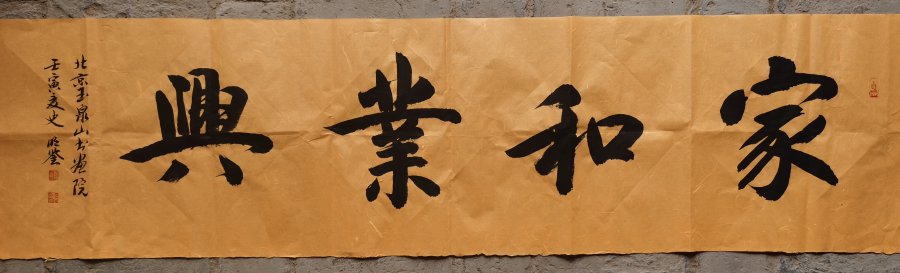 家和業興
北京玉泉山书画院
壬寅夏史